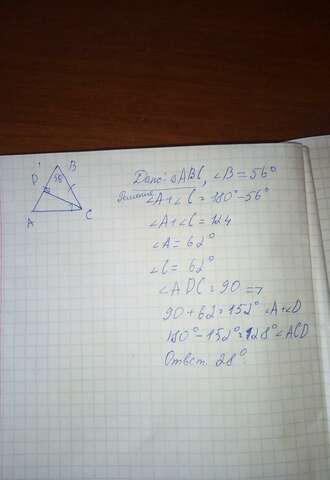 B
56
D
A
C
Дано: △ABC, ∠B = 56°
Решение
∠A + ∠C = 180° - 56°
∠A + ∠C = 124
∠A = 62°
∠C = 62°
∠ADC = 90 =>
90 + 62 = 152° ∠A + ∠D
180° - 152° = 128° ∠ACD
Ответ 28°.